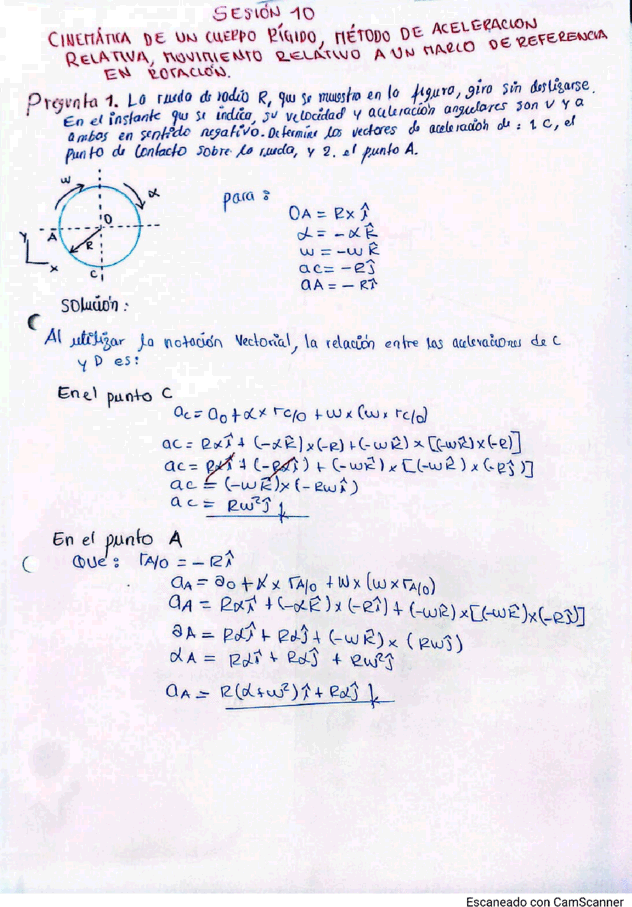 SESIÓN 10
CINEMÁTICA DE UN CUERPO RÍGIDO, MÉTODO DE ACELERACION
RELATIVA, MOVIMIENTO RELATIVO A UN MARCO DE REFERENCIA
EN ROTACIÓN.
Pregunta 1. La rueda de radio R, que se muestra en la figura, gira sin deslizarse.
En el instante que se indica, su velocidad y aceleración angulares son v y a
ambas en sentido negativo. Determine los vectores de aceleración de: 1. C, el
punto de contacto sobre la rueda, y 2. el punto A.
w
α
O
A
R
C
Y
X
para:
OA = R x ĵ
α = -α k̂
w = -w k̂
ac = -R ĵ
aA = -R î
Solución:
Al utilizar la notación vectorial, la relación entre las aceleraciones de C
y D es:
En el punto C
ac = ao + α x rc/o + w x (w x rc/o)
ac = Rαî + (-αk̂) x (-R) + (-wk̂) x [(-wk̂) x (-R)]
ac = Rαî + (-Rαî) + (-wk̂) x [(-wk̂) x (-Rĵ)]
ac = (-wk̂) x (-Rwî)
ac = Rw²ĵ
En el punto A
Que: rA/o = -Rî
aA = ao + α x rA/o + w x (w x rA/o)
aA = Rαî + (-αk̂) x (-Rî) + (-wk̂) x [(-wk̂) x (-Rĵ)]
aA = Rαî + Rαĵ + (-wk̂) x (Rwĵ)
αA = Rαî + Rαĵ + Rw²ĵ
aA = R(α+w²)î + Rαĵ
Escaneado con CamScanner